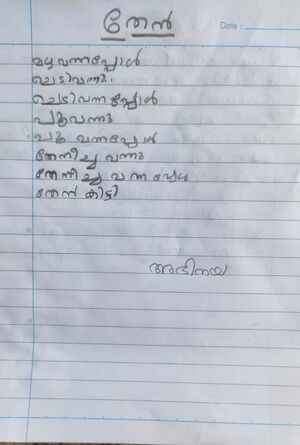 തേൻ
Date :
മഴ വന്നപ്പോൾ
ചെടിവന്നു.
ചെടിവന്നപ്പോൾ
പൂവന്നു
പൂ വന്നപ്പോൾ
തേനീച്ച വന്നു
തേനീച്ച വന്നപ്പോൾ
തേൻ കിട്ടി
അഭിനയ